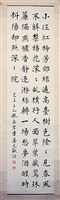 小徑紅稀芳郊綠遍高臺樹色陰陰見春風
不解禁楊花濛濛亂撲行人面翠葉藏鶯珠
簾隔燕爐香靜逐游絲轉一場愁夢酒醒時
斜陽卻照深深院